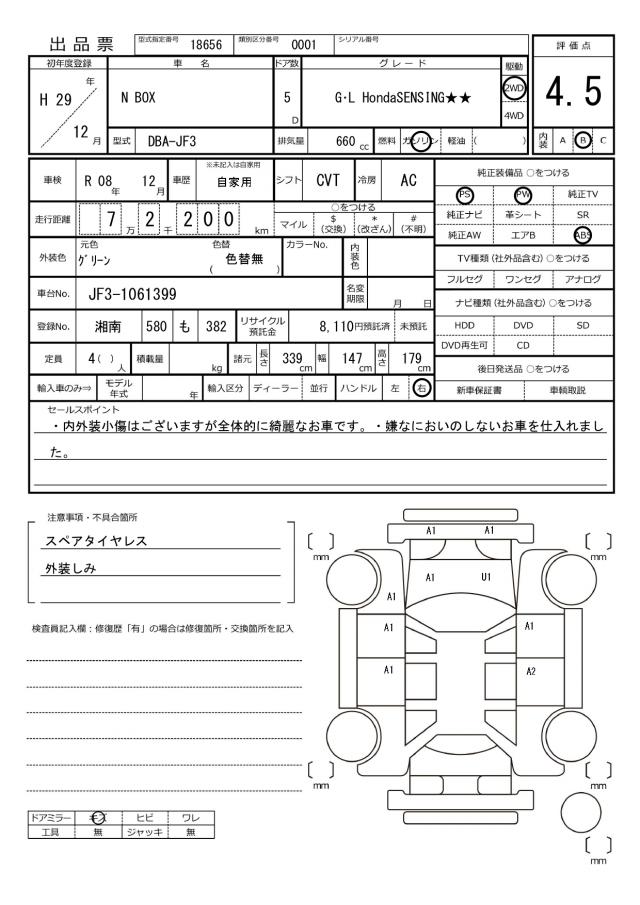 出品票
型式指定番号 18656 類別区分番号 0001 シリアル番号
評価点
4.5
初年度登録 車名 ドア数 グレード 駆動
H 29 年 12 月
N BOX
5 D
G・L HondaSENSING★★
2WD
4WD
型式 DBA-JF3 排気量 660 cc 燃料 ガソリン 軽油 ( )
内装 A B C
車検 R 08 年 12 月 車歴 ※未記入は自家用 自家用 シフト CVT 冷房 AC
走行距離 7 万 2 千 2 0 0 km
○をつける
マイル $ (交換) * (改ざん) # (不明)
外装色 元色 グリーン 色替 ( 色替無 ) カラーNo. 内装色
車台No. JF3-1061399 名変期限 月 日
登録No. 湘南 580 も 382 リサイクル預託金 8,110円預託済 未預託
定員 4( ) 人 積載量 kg 諸元 長さ 339 cm 幅 147 cm 高さ 179 cm
輸入車のみ⇒ モデル年式 年 輸入区分 ディーラー 並行 ハンドル 左 右
純正装備品 ○をつける
PS PW 純正TV
純正ナビ 革シート SR
純正AW エアB ABS
TV種類(社外品含む) ○をつける
フルセグ ワンセグ アナログ
ナビ種類(社外品含む) ○をつける
HDD DVD SD
DVD再生可 CD
後日発送品 ○をつける
新車保証書 車輌取説
セールスポイント
・内外装小傷はございますが全体的に綺麗なお車です。・嫌なにおいのしないお車を仕入れまし
た。
注意事項・不具合箇所
スペアタイヤレス
外装しみ
検査員記入欄：修復歴「有」の場合は修復箇所・交換箇所を記入
ドアミラー キズ ヒビ ワレ
工具 無 ジャッキ 無
A1 A1
mm mm
A1 U1
A1
A1 A1
A1 A2
mm mm
mm